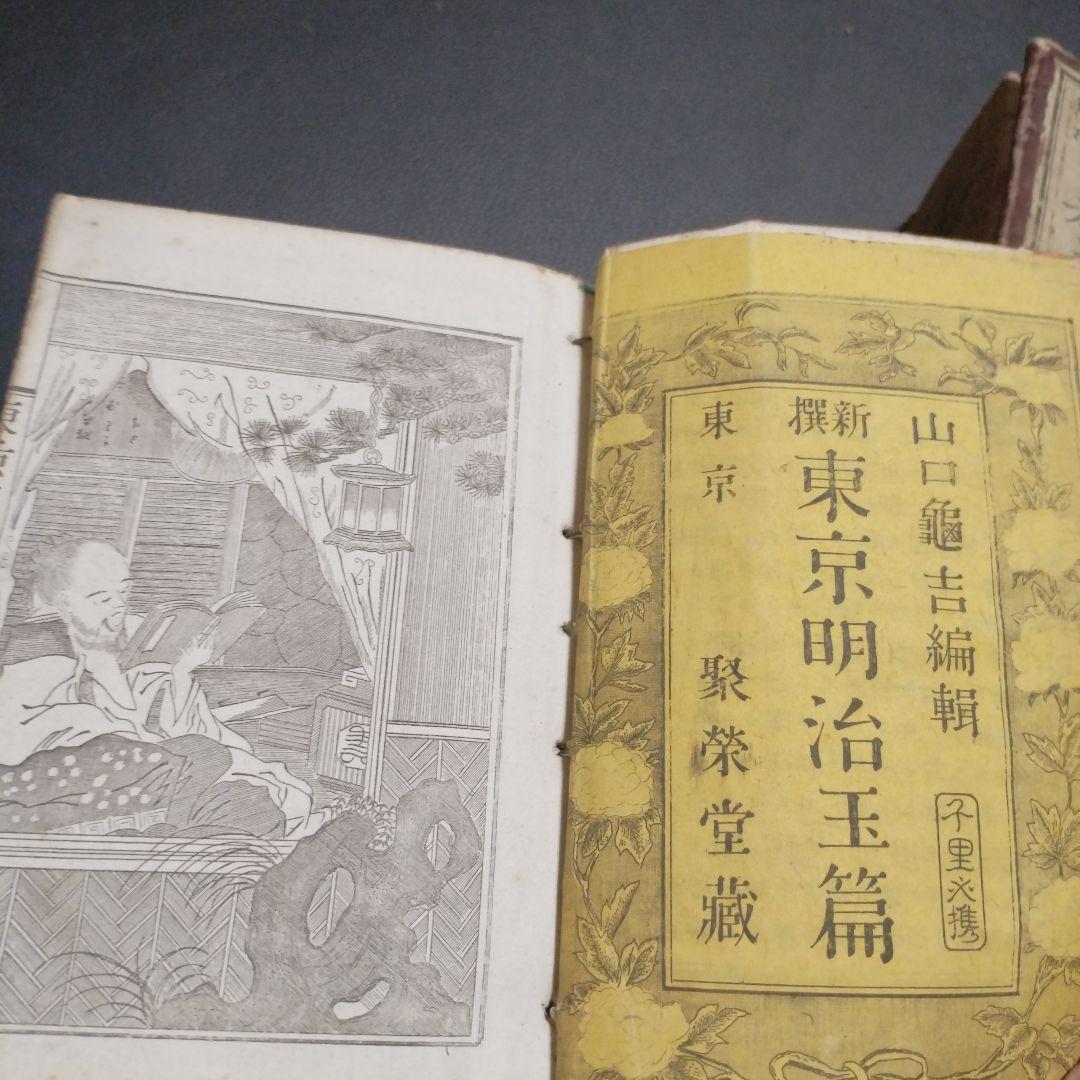 山口龜吉編輯
千里必携
新撰
東京明治玉篇
東京 聚榮堂藏
東京